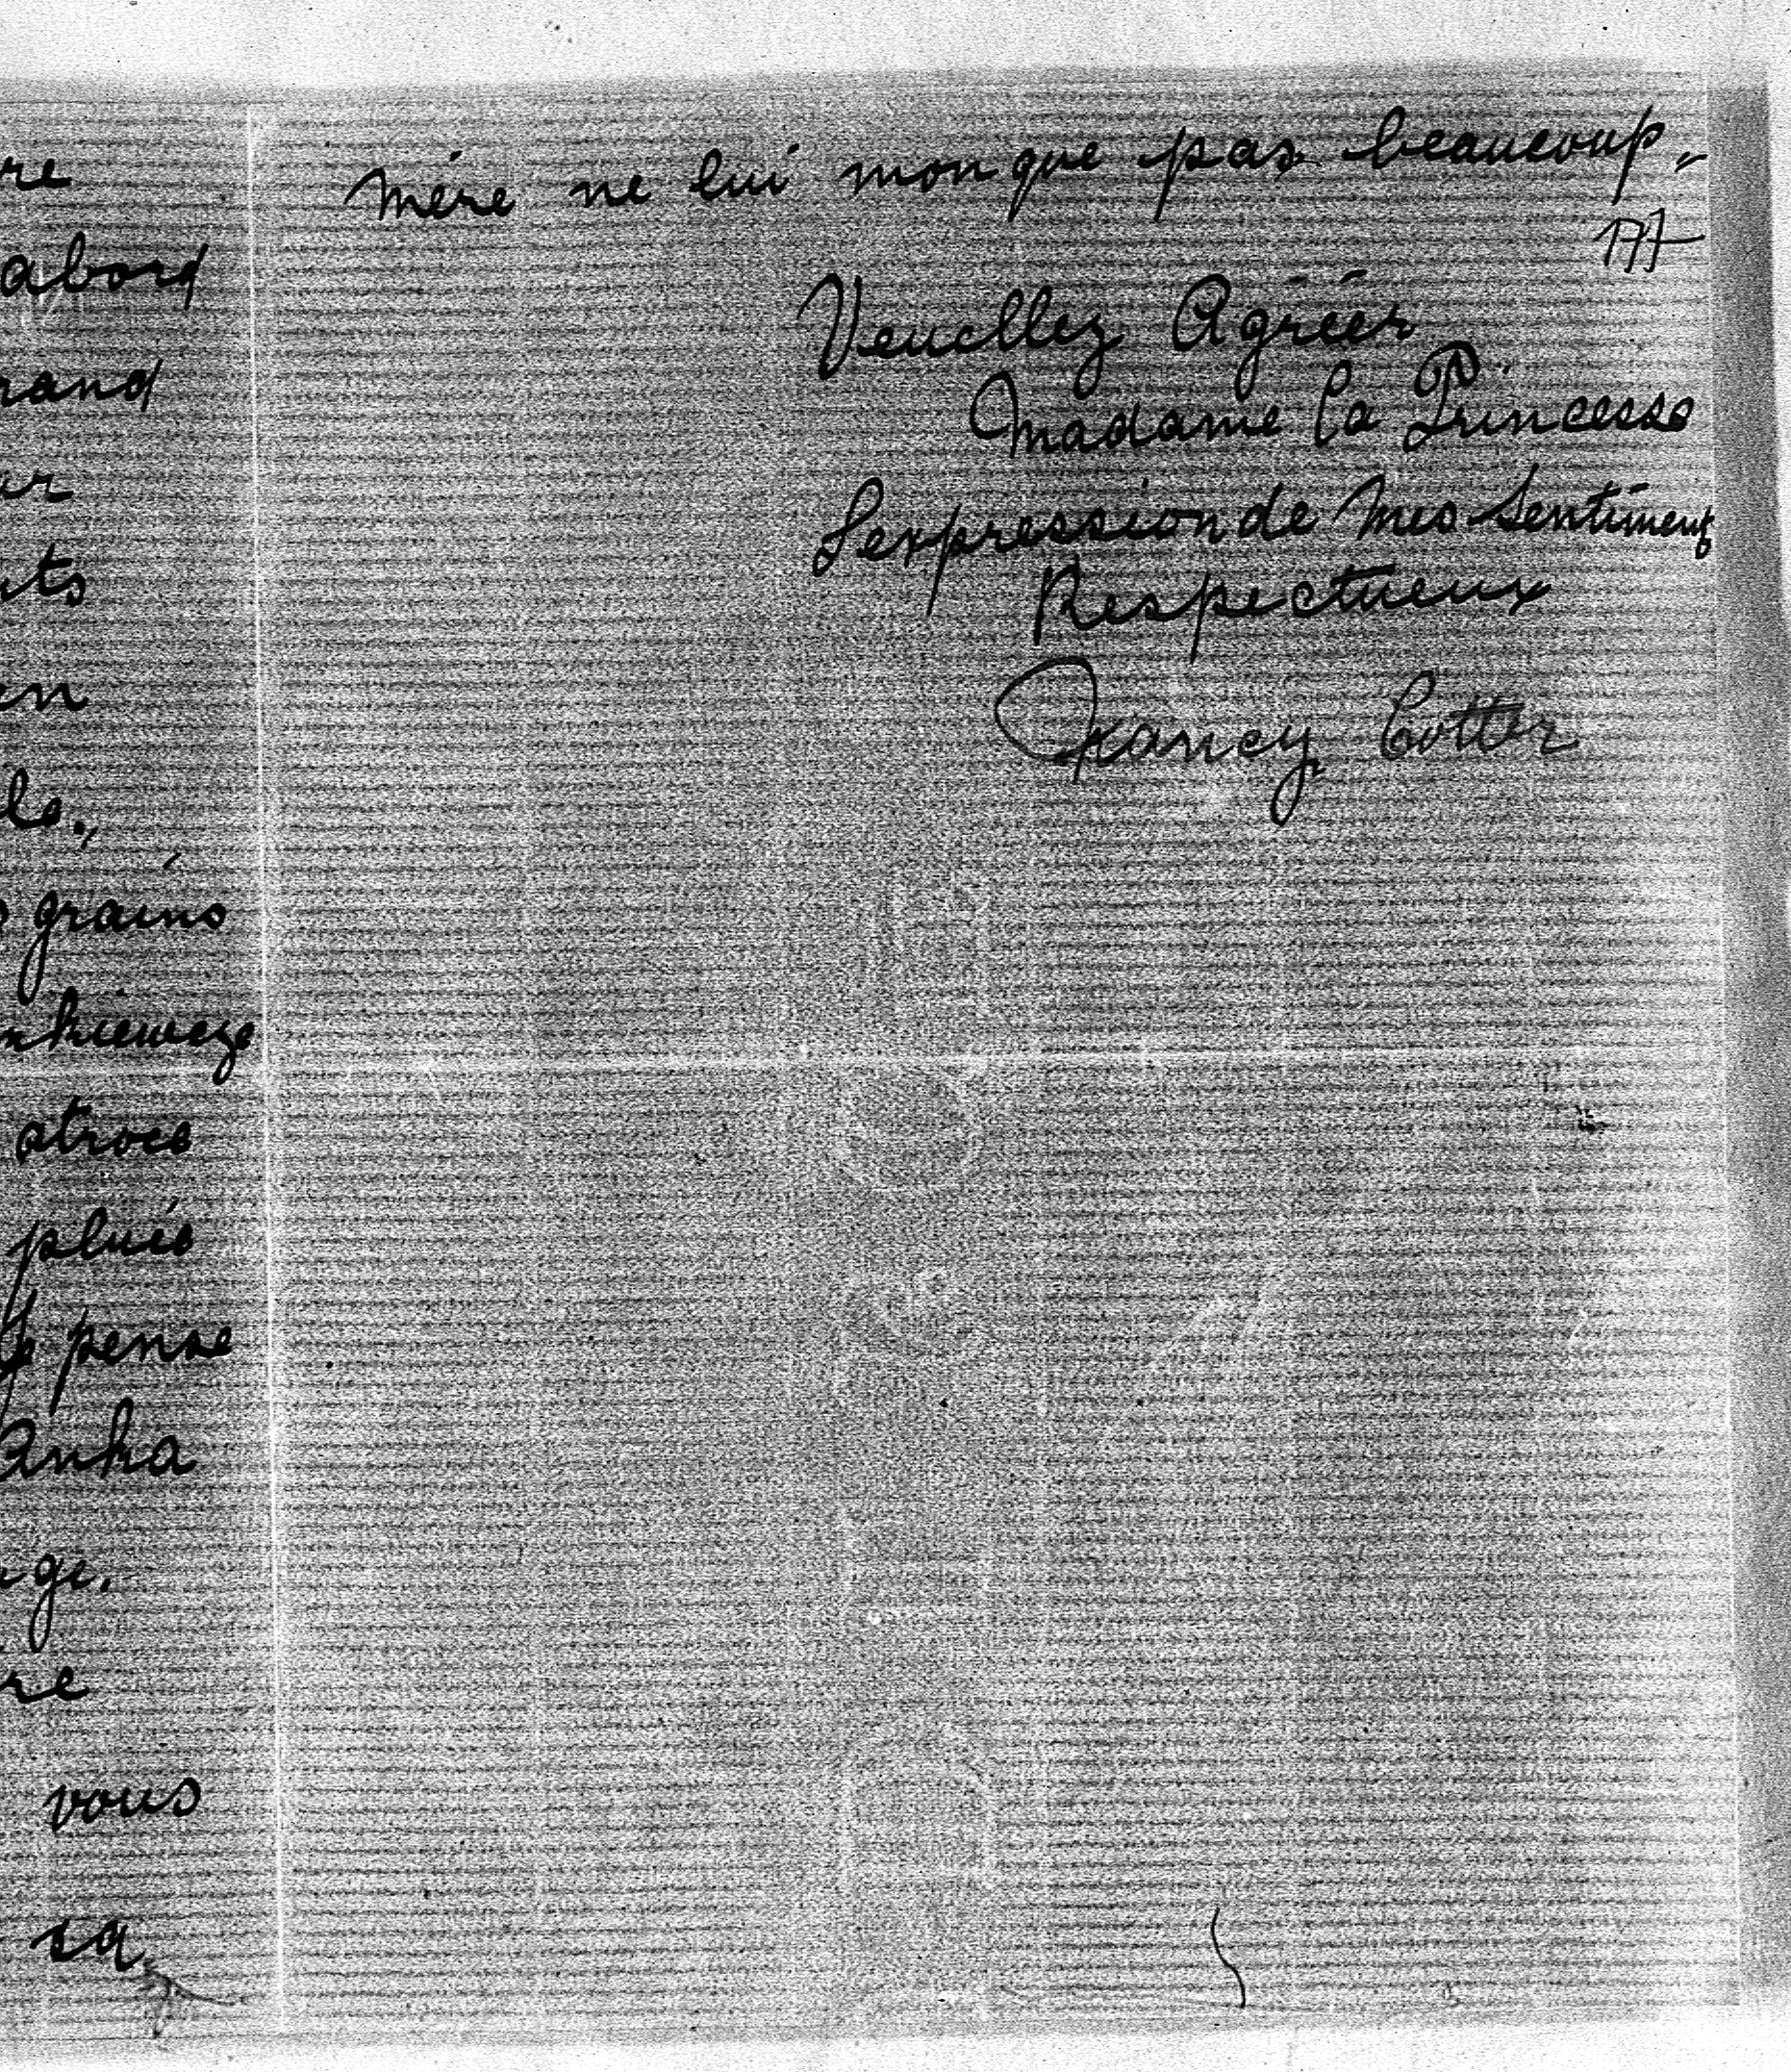 re
abord
rand
ar
nts
en
le.,
grains
nkiewege
atroce
pluie
pense
Anka
ge.
re
vous
sa
mère ne lui monque pas beaucoup.
177
Veuellez Agréer
Madame la Princesse
L'expression de Mes Sentiments
Respectueux
Nancy Cotter